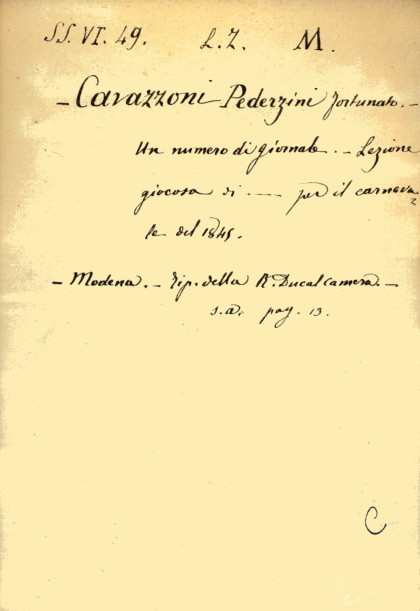 SS. VI. 49. L. Z. M.
- Cavazzoni Pederzini Fortunato. -
Un numero di giornale. - Lezione
giocosa di --- per il carnova
le del 1845.
- Modena. - Tip. della R. Ducal camera. -
s.a. pag. 13.
C